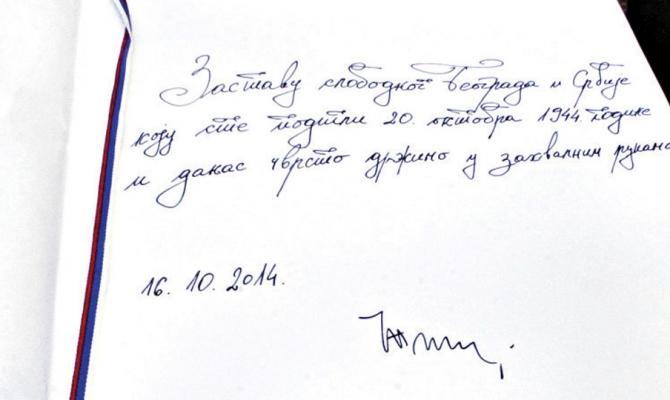 Заставу слободног Београда и Србије
коју сте подигли 20. октобра 1944. године
и данас чврсто држимо у захвалним рукама
16. 10. 2014.